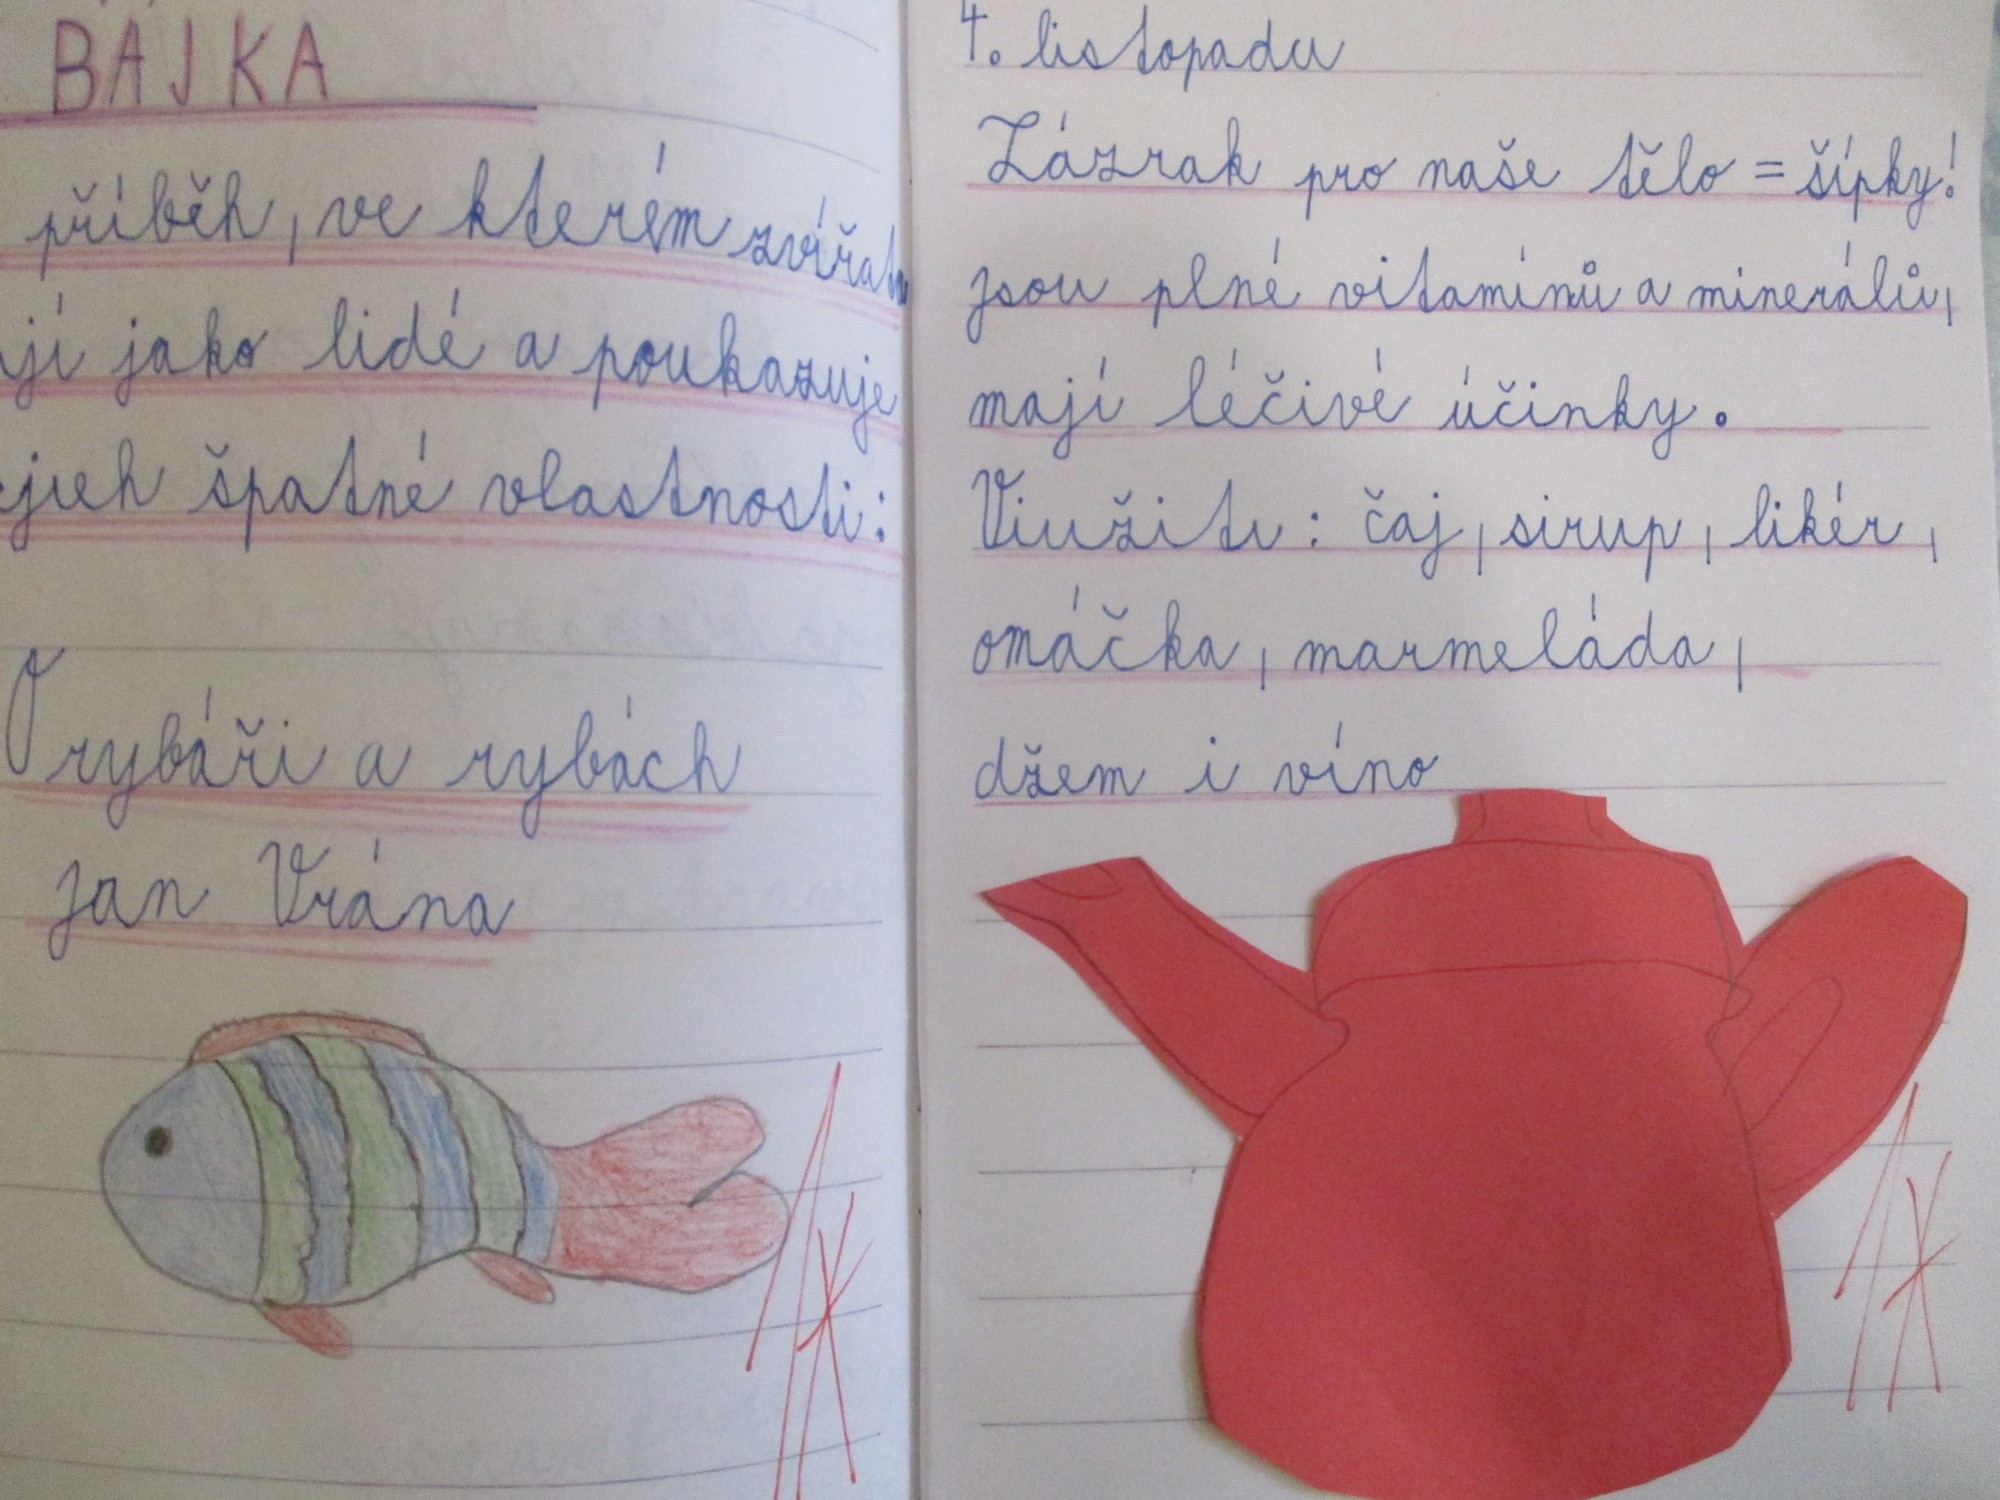 BAJKA
příběh, ve kterém zvířata
jí jako lidé a poukazuje
jich špatné vlastnosti:
O rybáři a rybách
jan Vrána
4. listopadu
Zázrak pro naše tělo = šípky!
jsou plné vitamínů a minerálů,
mají léčivé účinky.
Viužití: čaj, sirup, likér,
omáčka, marmeláda,
džem i víno